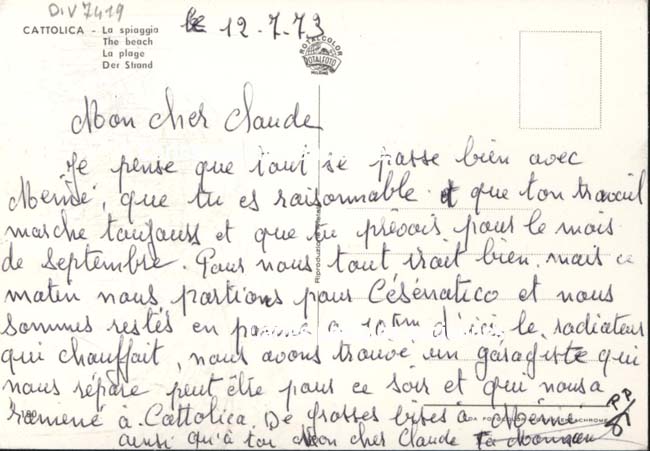 DIV 7419
CATTOLICA - La spiaggia
The beach
La plage
Der Strand
le 12.7.73
ROTALCOLOR
ROTALFOTO
MILANO
Mon cher Claude
Je pense que tout se passe bien avec
Mémé, que tu es raisonnable et que ton travail
marche toujours et que tu prévois pour le mois
de septembre. Pour nous tout irait bien mais ce
matin nous partions pour Césénatico et nous
sommes restés en panne à 10km d'ici le radiateur
qui chauffait, nous avons trouvé un garagiste qui
nous répare peut être pour ce soir et qui nous a
ramené à Cattolica. De grosses bises à Mémé
ainsi qu'à toi Mon cher Claude Ta Maman